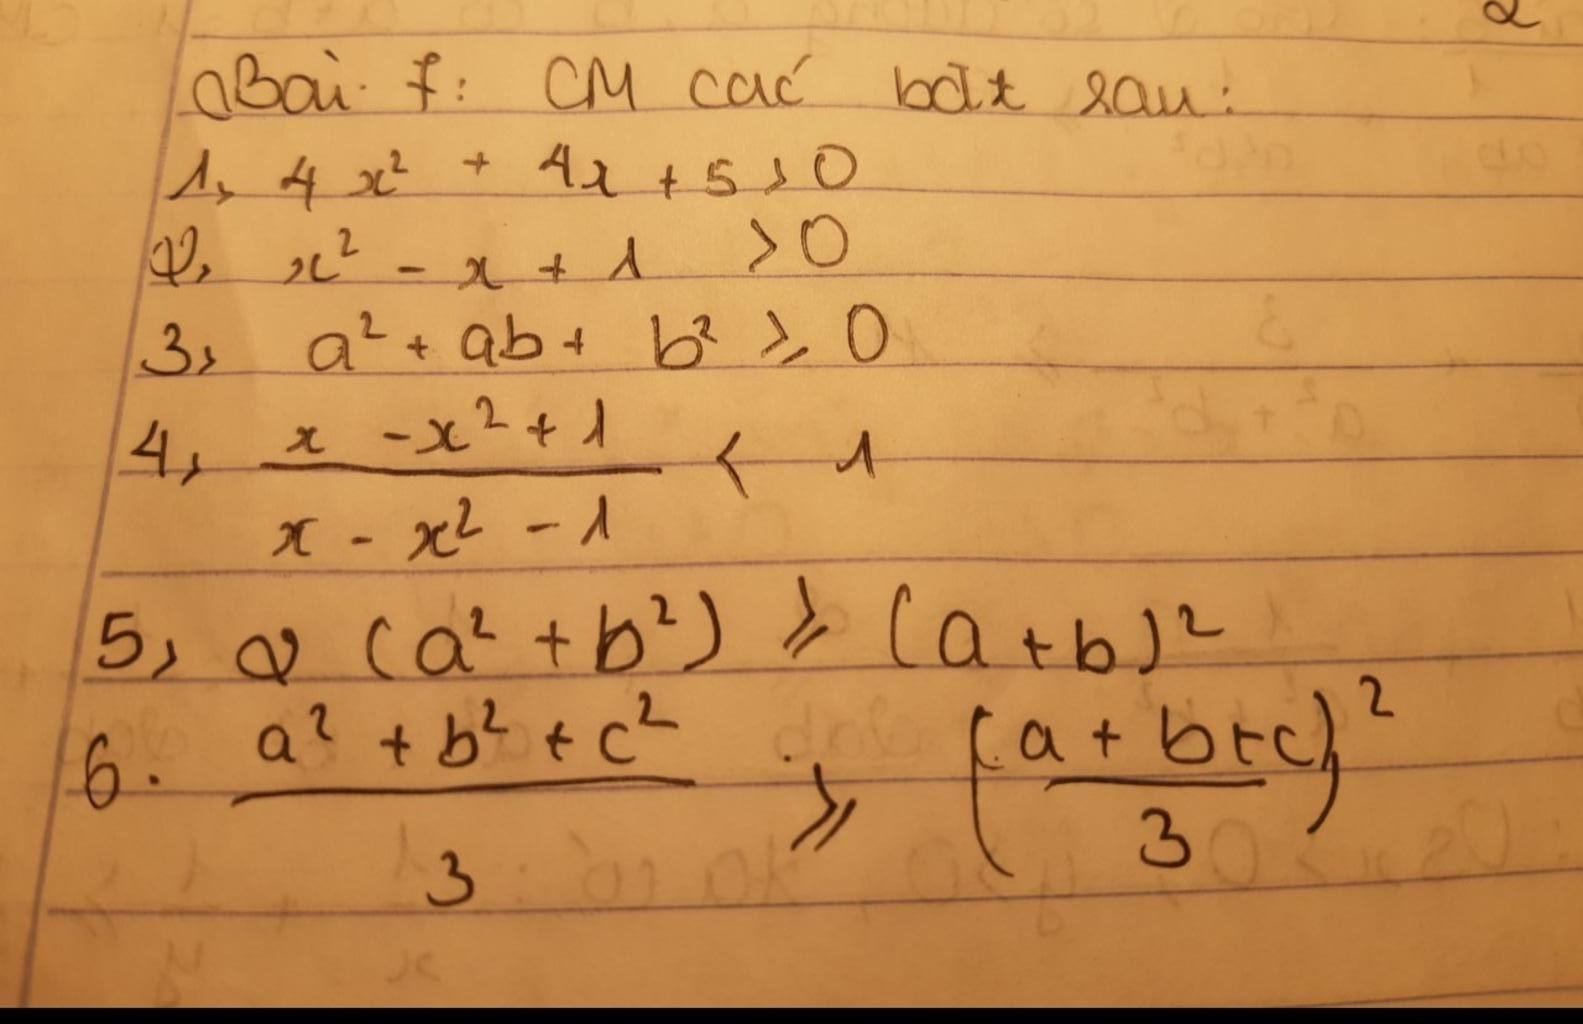 2
Bài 7: CM các bất sau:
1, 4x² + 4x + 5 > 0
2, x² - x + 1 > 0
3, a² + ab + b² ⩾ 0
4, (x - x² + 1)/(x - x² - 1) < 1
5, 2(a² + b²) ⩾ (a + b)²
6. (a² + b² + c²)/3 ⩾ ((a + b + c)/3)²